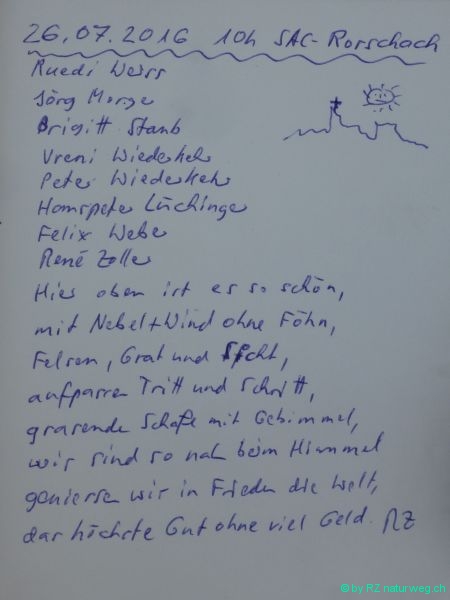 26.07.2016 10h SAC-Rorschach
Ruedi Weiss
Jörg Morge
Brigitt Staub
Vreni Wiederkehr
Peter Wiederkehr
Hanspeter Lüchinger
Felix Weber
René Zoller
Hier oben ist es so schön,
mit Nebel+Wind ohne Föhn,
Felsen, Grat und Sicht,
aufpassen Tritt und Schritt,
grasende Schafe mit Gebimmel,
wir sind so nah beim Himmel
geniessen wir in Frieden die Welt,
das höchste Gut ohne viel Geld. RZ
© by RZ naturweg.ch